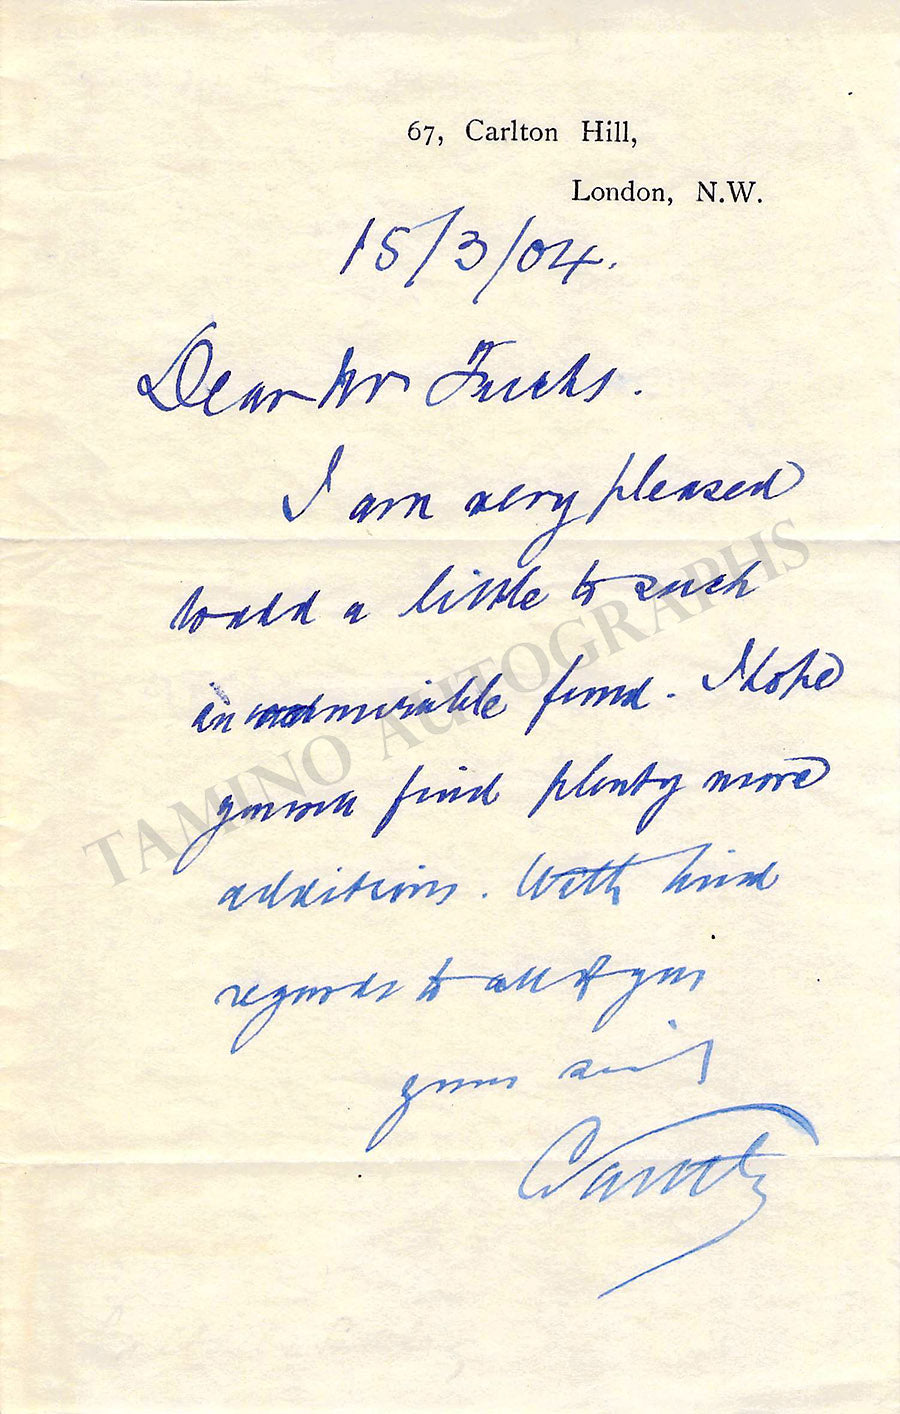 67, Carlton Hill,
London, N.W.
15/3/04.
Dear Mr Fuchs.
I am very pleased
to add a little to such
an admirable fund. I hope
you will find plenty more
additions. With kind
regards to all of you
yours
TAMINO AUTOGRAPHS